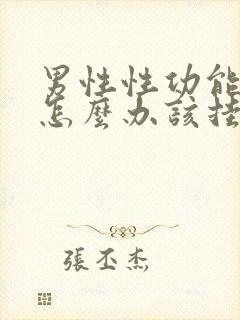 男性性功能
怎麼办該挂
張丕杰